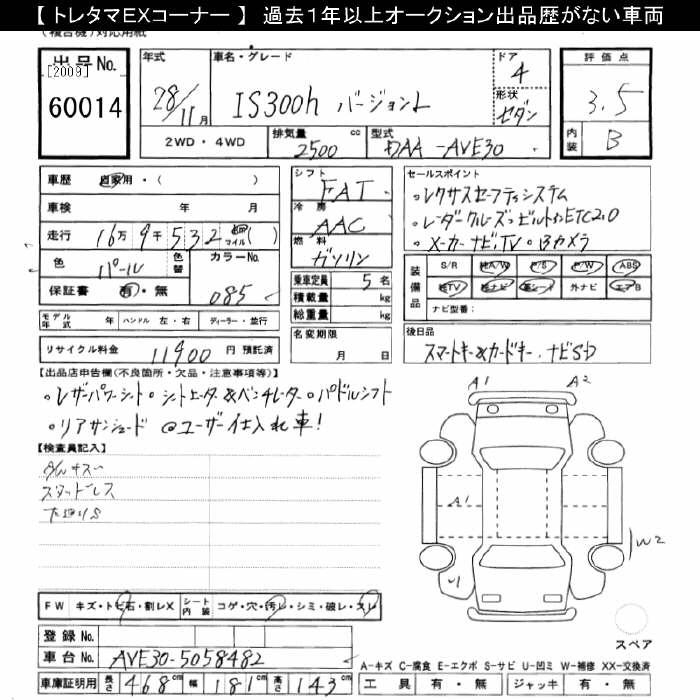 【 トレタマEXコーナー 】 過去1年以上オークション出品歴がない車両
出品No.
[2009]
60014
年式
28/11月
車名・グレード
IS300h バージョンL
ドア
4
形状
セダン
評価点
3.5
内装
B
2WD・4WD
排気量
2500 cc
型式
DAA-AVE30
車歴 自家用・( )
車検 年 月
走行 16万9千532 km マイル( )
色 パール
色替
カラーNo.
085
保証書 有・無
シフト
FAT
冷房
AAC
燃料
ガソリン
乗車定員 5 名
積載量 kg
総重量 kg
名変期限
月 日
セールスポイント
・レクサスセーフティシステム
・レーダークルーズ・ビルトインETC2.0
・メーカーナビ,TV・Bカメラ
装備品
S/R 純A/W P/S P/W ABS
純TV 純ナビ 革シート 外ナビ エアB
ナビ型番:
モデル年式 年 ハンドル 左・右 ディーラー・並行
リサイクル料金 11900 円 預託済
後日品
スマートキー&カードキー、ナビSD
【出品店申告欄(不良箇所・欠品・注意事項等)】
・レザーパワーシート・シートヒーター&ベンチレーター・パドルシフト
・リアサンシェード @ユーザー仕入れ車!
【検査員記入】
スタッドレス
A1
A2
A1
W2
U1
FW キズ・トビ石・割レX
シート内装 コゲ・穴・汚レ・シミ・破レ・スレ
登録No.
車台No. AVE30-5058482
車庫証明用 長さ 468cm 幅 181cm 高さ 143cm
スペア
A-キズ C-腐食 E-エクボ S-サビ U-凹ミ W-補修 XX-交換済
工具 有・無 ジャッキ 有・無